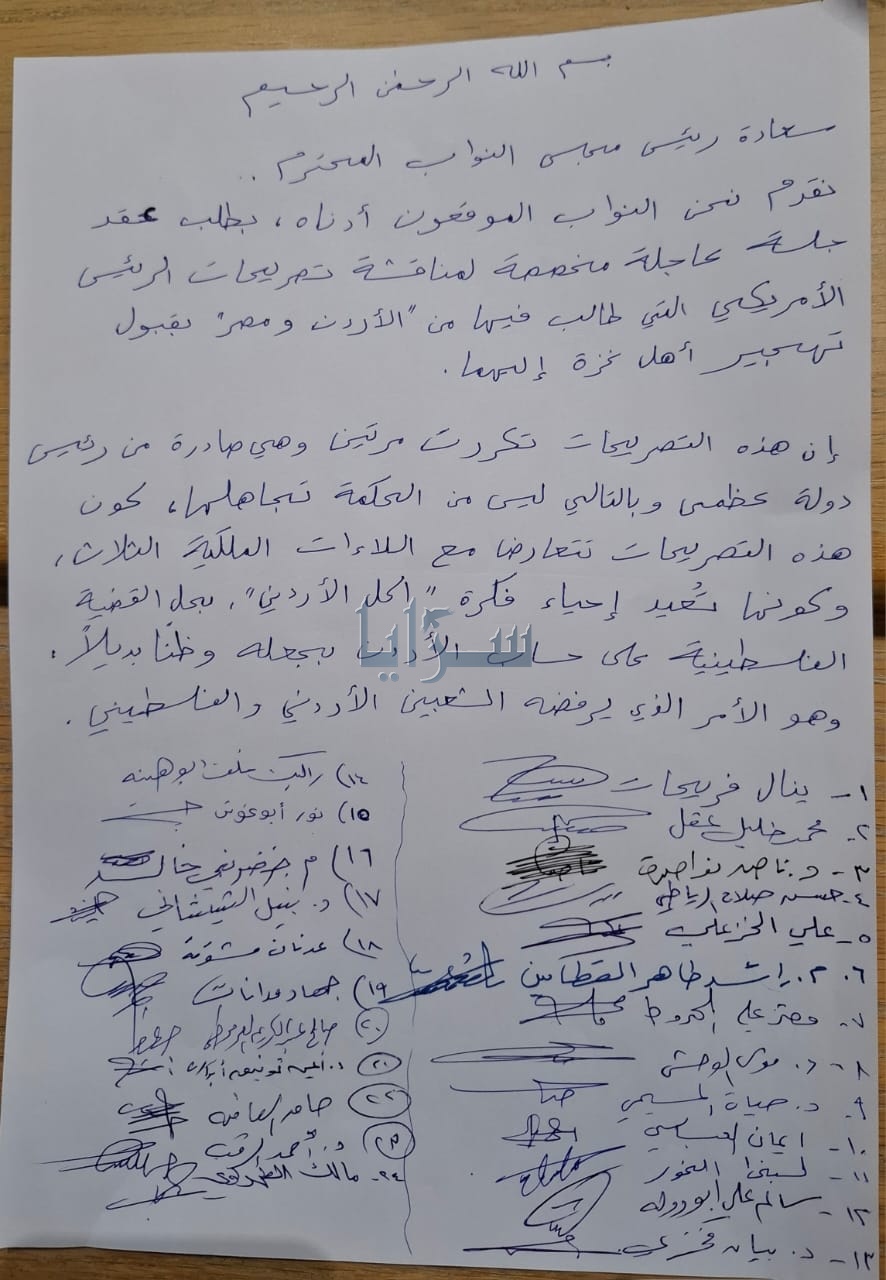 بسم الله الرحمن الرحيم
سعادة رئيس مجلس النواب المحترم ..
نقدم نحن النواب الموقعون أدناه، بطلب عقد
جلسة عاجلة مخصصة لمناقشة تصريحات الرئيس
الأمريكي التي طالب فيها من "الأردن ومصر" بقبول
تهجير أهل غزة إليهما.
إن هذه التصريحات تكررت مرتين وهي صادرة من رئيس
دولة عظمى وبالتالي ليس من الحكمة تجاهلها، كون
هذه التصريحات تتعارض مع اللاءات الملكية الثلاث،
وكونها تُعيد إحياء فكرة "الحل الأردني"، بحل القضية
سرايا
الفلسطينية على حساب الأردن بجعله وطنًا بديلاً.
وهو الأمر الذي يرفضه الشعبين الأردني والفلسطيني.
١- ينال فريحات
٢- محمد خليل عقل
٣- د. ناصر نواصرة
٤- حسن صلاح الرياطي
٥- علي الخزعلي
٦. م. راشد طاهر القطامين
٧- معتز علي الهروط
٨- د. موسى الوحش
٩- د. حياة المسيمي
١٠- ايمان العباسي
١١- لبنى النمور
١٢- سالم علي ابو دولة
١٣- د. بيان
١٤) راكين خلف ابو هنية
١٥) نور أبو غوش
١٦) م خضر بني خالد
١٧) د. نبيل الشيشاني
١٨) عدنان مشوقة
١٩) جهاد مدانات
٢٠) صالح عبد الكريم
٢١) د.
٢٢)
٢٣) د. أحمد الرقب
٢٤- مالك